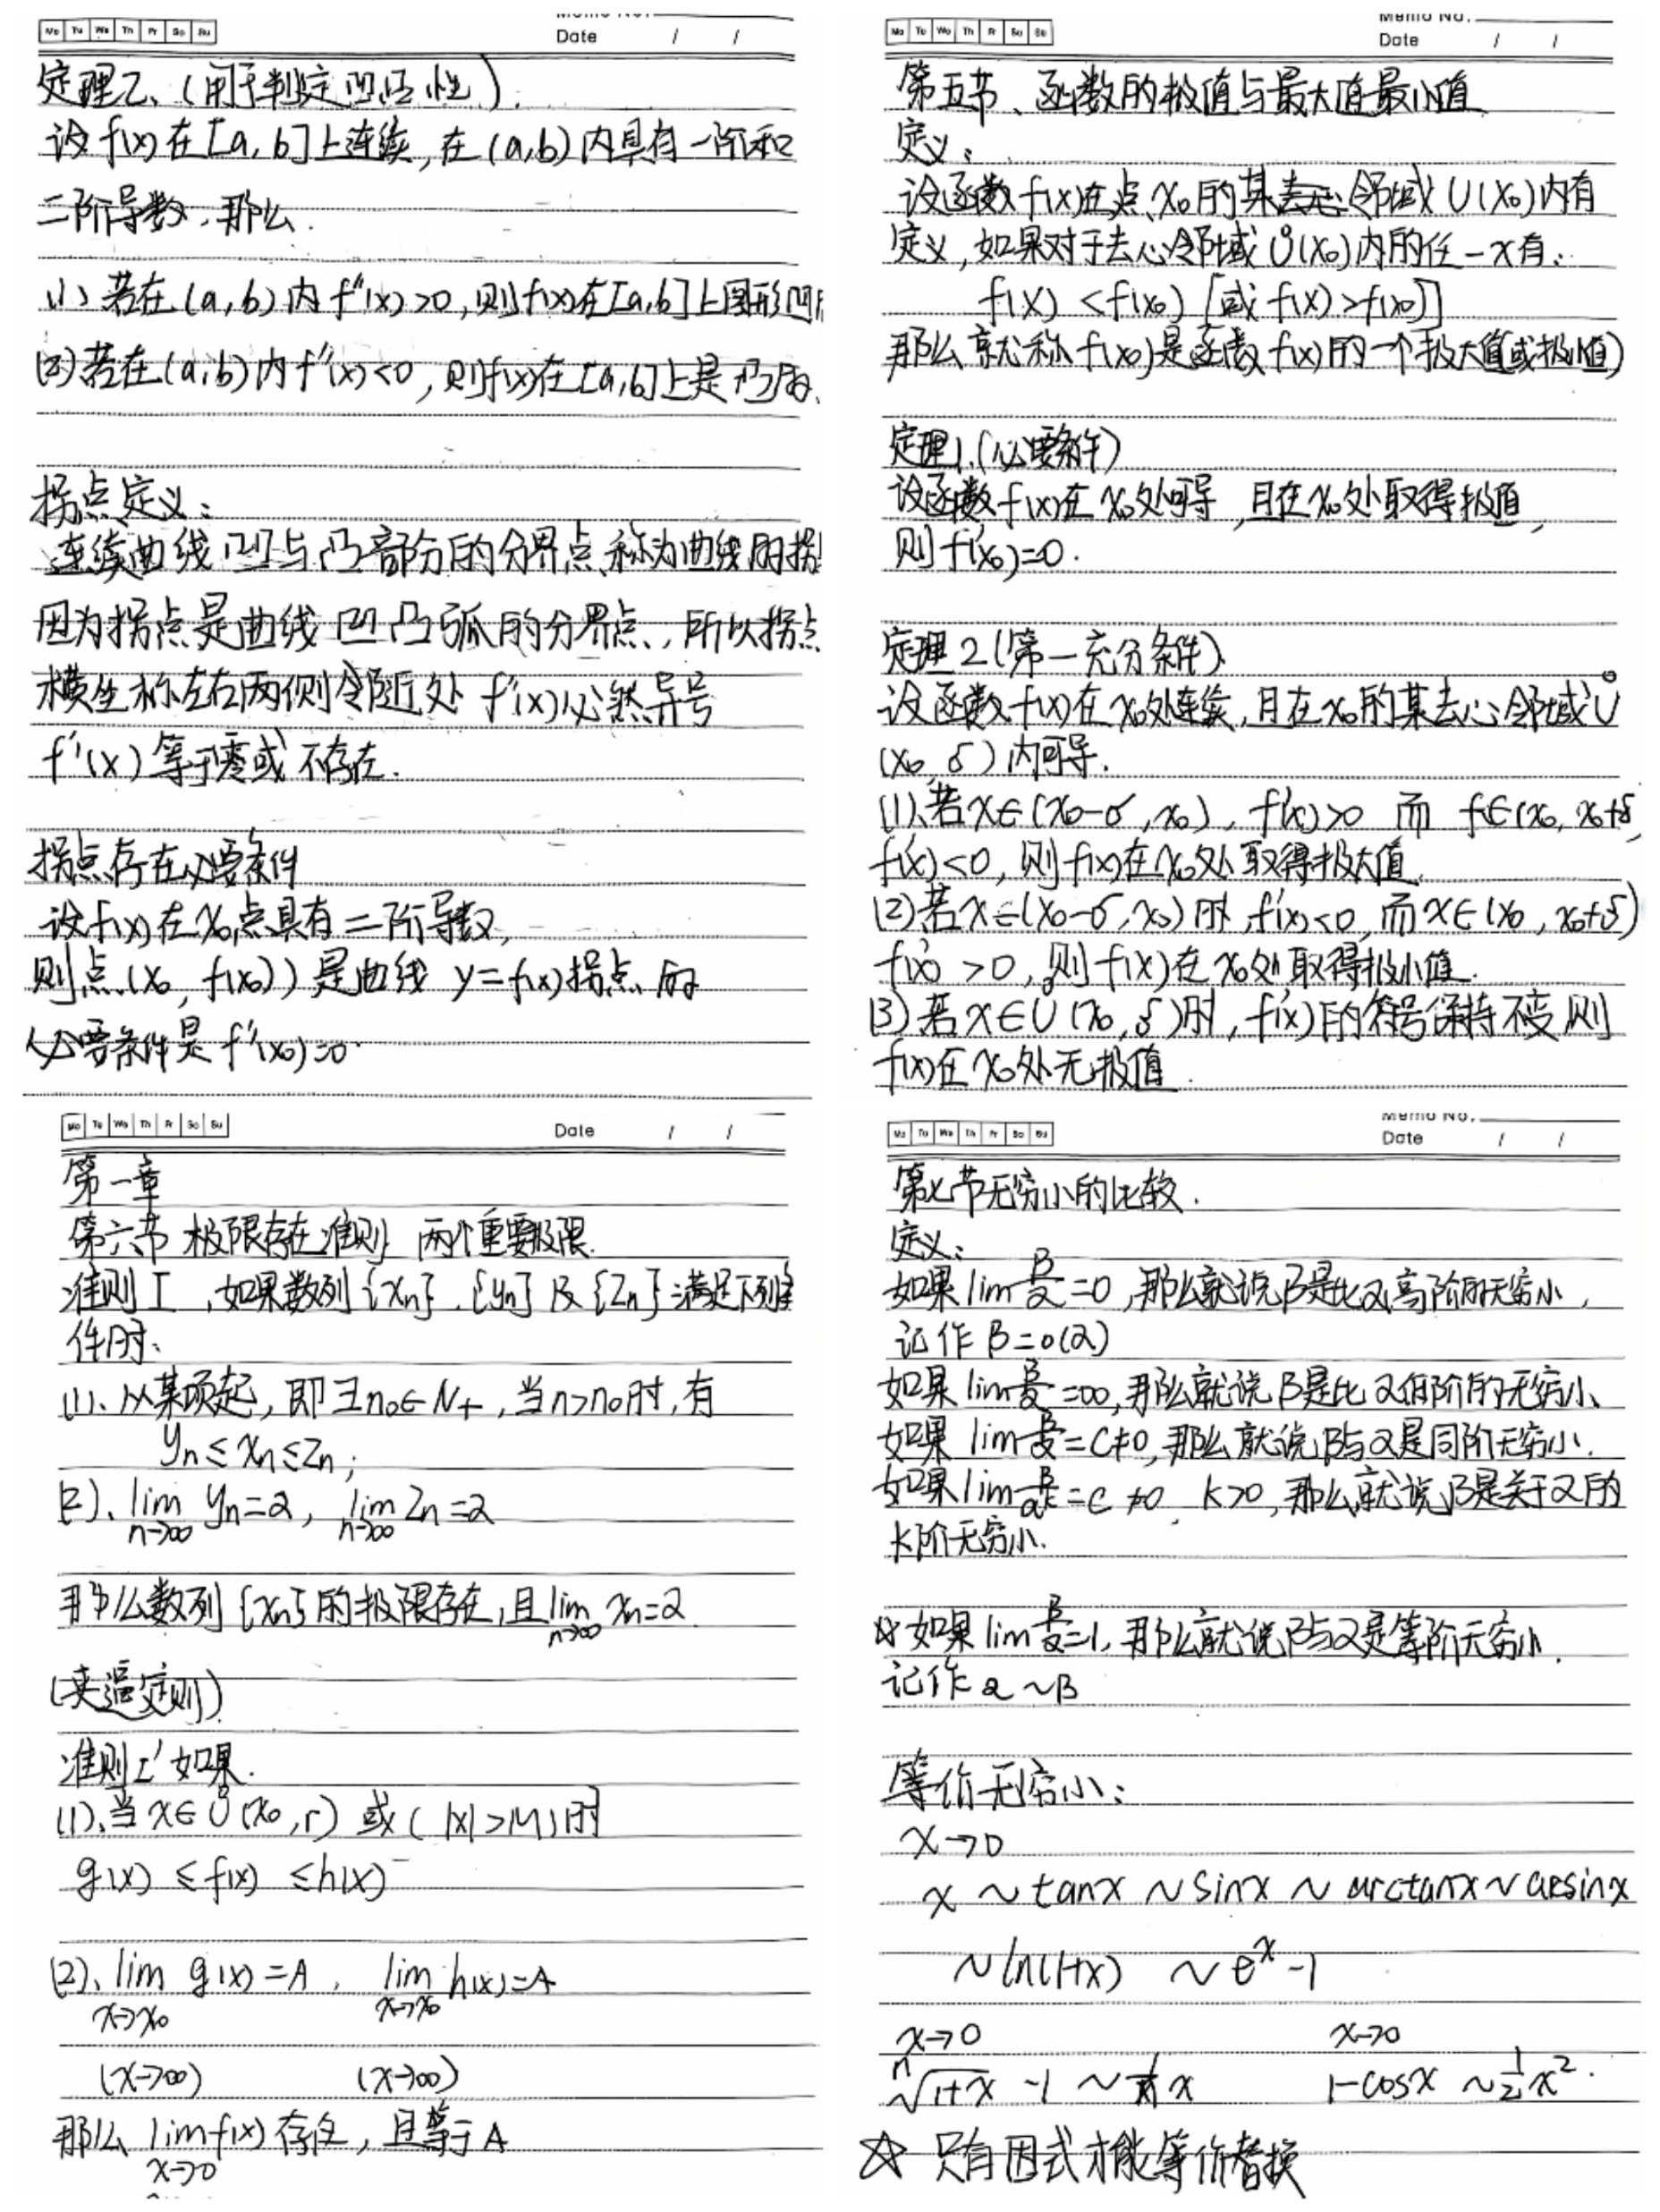 Mo Tu We Th Fr Sa Su
Memo No.
Date / /
定理2、(用于判定凹凸性).
设f(x)在[a,b]上连续,在(a,b)内具有一阶和
二阶导数,那么.
(1)、若在(a,b)内f''(x)>0,则f(x)在[a,b]上图形凹
(2)若在(a,b)内f''(x)<0,则f(x)在[a,b]上是凸的.
拐点定义:
连续曲线凹与凸部分的分界点称为曲线的拐
因为拐点是曲线凹凸弧的分界点,所以拐点
横坐标左右两侧邻近处f''(x)必然异号
f''(x)等于零或不存在.
拐点存在必要条件
设f(x)在x₀点具有二阶导数,
则点(x₀,f(x₀))是曲线y=f(x)拐点的
必要条件是f''(x₀)=0.
Mo Tu We Th Fr Sa Su
Memo No.
Date / /
第五节、函数的极值与最大值最小值
定义:
设函数f(x)在点x₀的某邻域U(x₀)内有
定义,如果对于去心邻域Ů(x₀)内的任一x有:
f(x)<f(x₀)[或f(x)>f(x₀)]
那么就称f(x₀)是函数f(x)的一个极大值(或极小值)
定理1.(必要条件)
设函数f(x)在x₀处可导,且在x₀处取得极值,
则f'(x₀)=0.
定理2(第一充分条件).
设函数f(x)在x₀处连续,且在x₀的某去心邻域Ů
(x₀,δ)内可导.
(1)、若x∈(x₀-δ,x₀),f'(x)>0 而 f∈(x₀,x₀+δ
f'(x)<0,则f(x)在x₀处取得极大值
(2)若x∈(x₀-δ,x₀)时,f'(x)<0,而x∈(x₀,x₀+δ)
f'(x)>0,则f(x)在x₀处取得极小值.
(3)若x∈Ů(x₀,δ)时,f'(x)的符号保持不变则
f(x)在x₀处无极值.
Mo Tu We Th Fr Sa Su
Date / /
第一章
第六节 极限存在准则 两个重要极限.
准则I,如果数列{xn}.{yn}及{zn}满足下列条
件时:
(1).从某项起,即∃n₀∈N₊,当n>n₀时,有
yn≤xn≤zn;
(2)、lim n→∞ yn=a, lim n→∞ zn=a
那么数列{xn}的极限存在,且lim n→∞ xn=a
(夹逼定则)
准则I'如果.
(1)、当x∈Ů(x₀,r)或(|x|>M)时
g(x)≤f(x)≤h(x)
(2)、lim x→x₀ g(x)=A, lim x→x₀ h(x)=A
(x→∞) (x→∞)
那么lim x→0 f(x)存在,且等于A
Mo Tu We Th Fr Sa Su
Memo No.
Date / /
第七节无穷小的比较.
定义:
如果lim β/α=0,那么就说β是比α高阶的无穷小,
记作β=o(α)
如果lim β/α=∞,那么就说β是比α低阶的无穷小、
如果lim β/α=C≠0,那么就说β与α是同阶无穷小.
如果lim β/αᵏ=C≠0,k>0,那么就说β是关于α的
k阶无穷小.
☆如果lim β/α=1,那么就说β与α是等阶无穷小.
记作α~β
等价无穷小:
x→0
x~tanx~sinx~arctanx~arcsinx
~ln(1+x) ~eˣ-1
x→0 x→0
ⁿ√1+x -1~1/n x 1-cosx~1/2 x².
☆ 只有因式才能等价替换